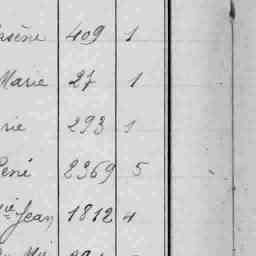 rsène 409 1
Marie 27 1
rie 293 1
René 2369 5
Jean 1812 4